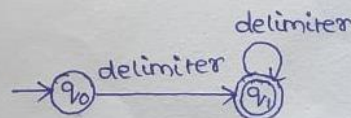 delimiter
delimiter
q₀ q₁